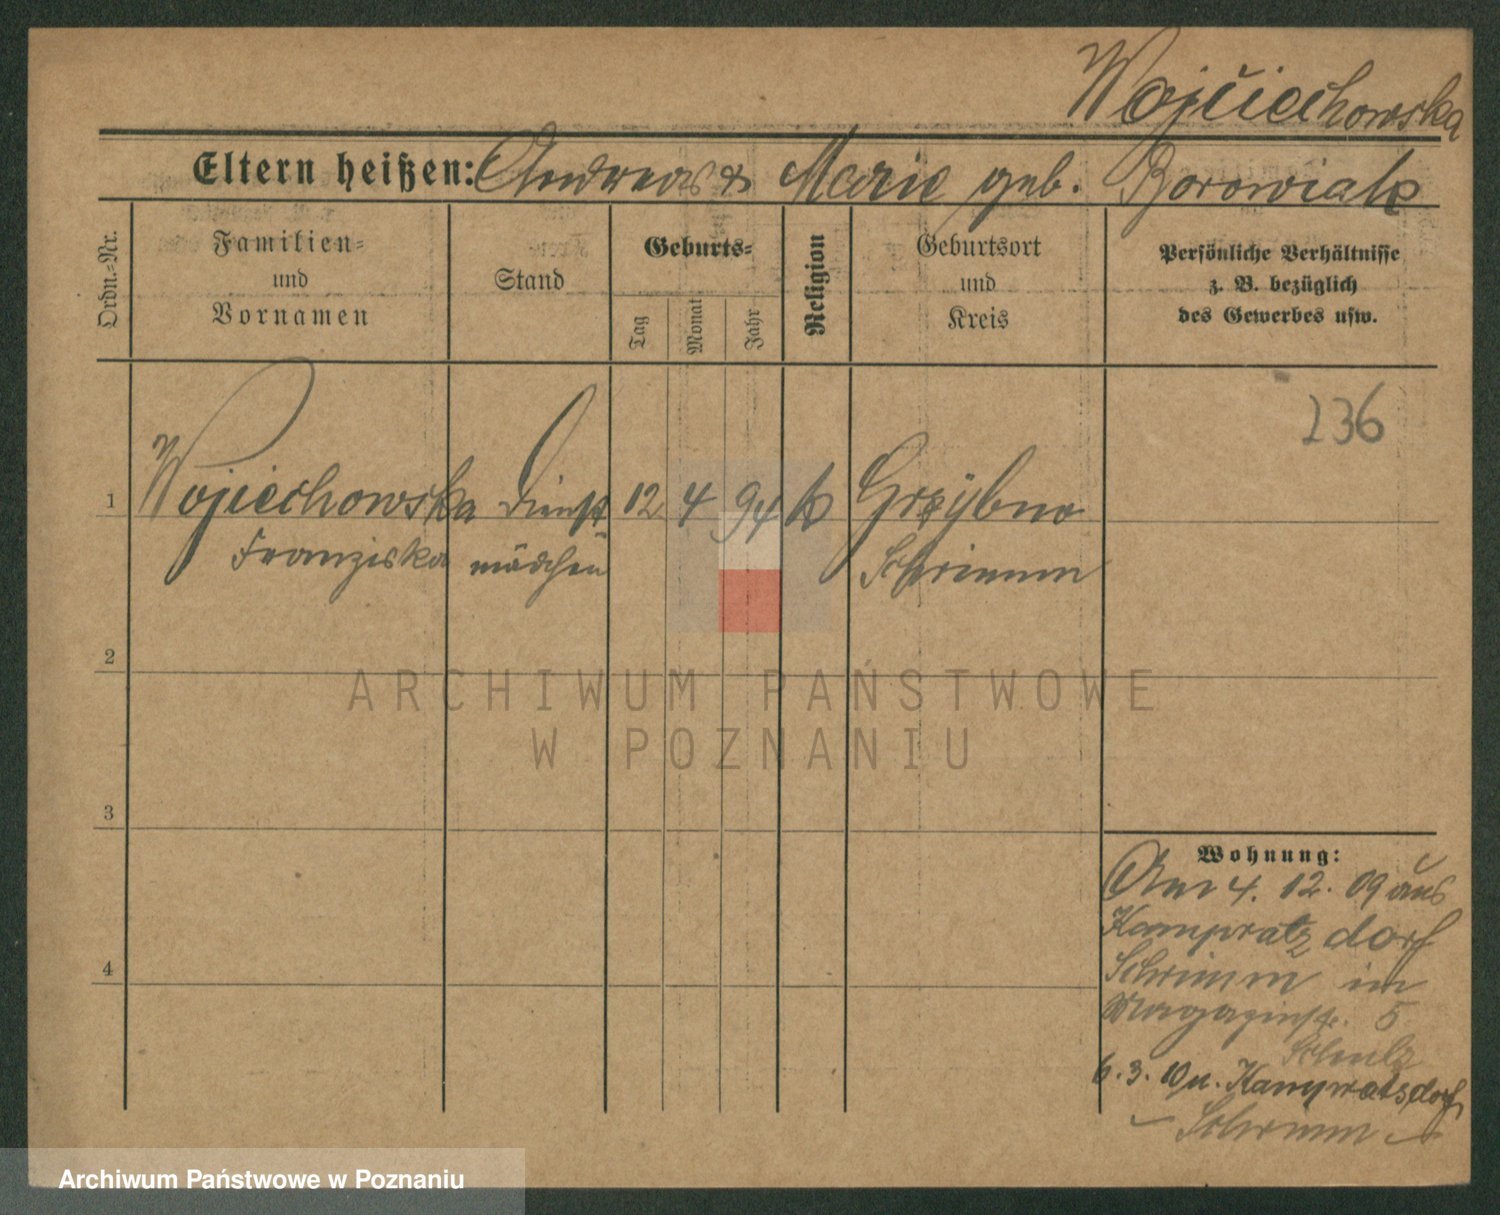 Wojciechowska
Eltern heißen: Andreas & Marie geb. Borowiak
Ordn.-Nr.
Familien-
und
Vornamen
Stand
Geburts-
Tag
Monat
Jahr
Religion
Geburtsort
und
Kreis
Persönliche Verhältnisse
z. B. bezüglich
des Gewerbes usw.
236
1 Wojciechowska Dienst 12 4 94 k Grzybno
Franziska mädchen Schrimm
2
3
4
Wohnung:
Am 4. 12. 09 aus
Kampratz dorf
Schrimm im
Magazinstr. 5
Schulz
6.3.10 n. Kampratsdorf
– Schrimm –
ARCHIWUM PAŃSTWOWE
W POZNANIU
Archiwum Państwowe w Poznaniu